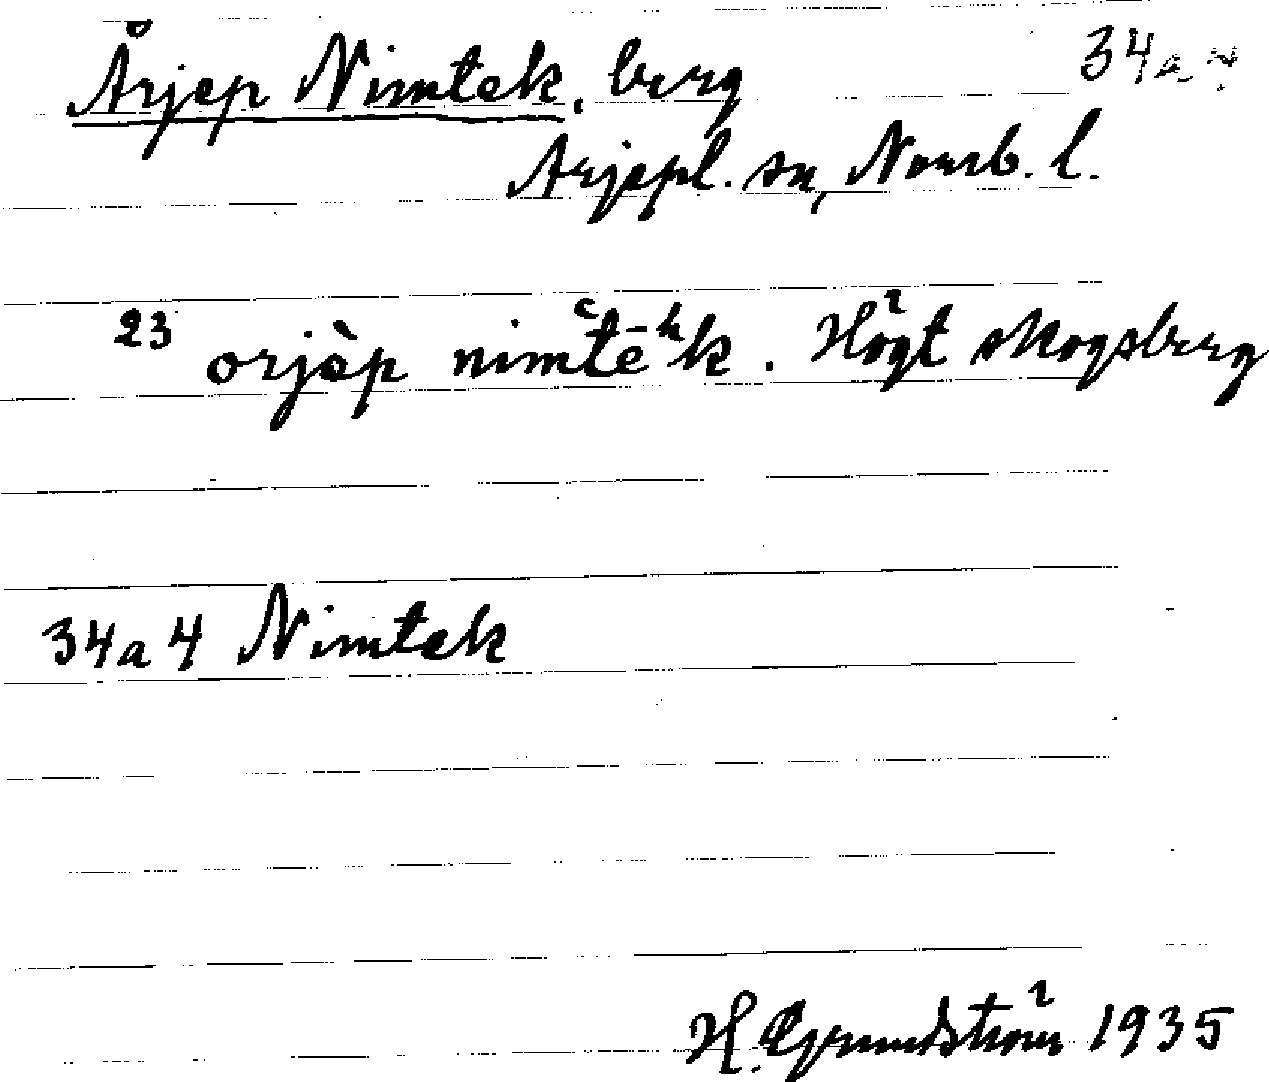 Årjep Nimtek, berg 34a
Arjepl. sn, Norrb. l.
23 orjèp nimtēʰk. Högt skogsberg
34a4 Nimtek
H. Grundström 1935